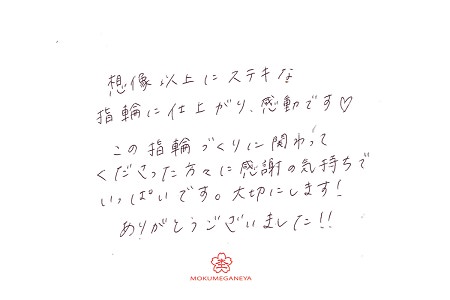 想像以上にステキな
指輪に仕上がり、感動です♡
この指輪づくりに関わって
くださった方々に感謝の気持ちで
いっぱいです。大切にします！
ありがとうございました!!
MOKUMEGANEYA